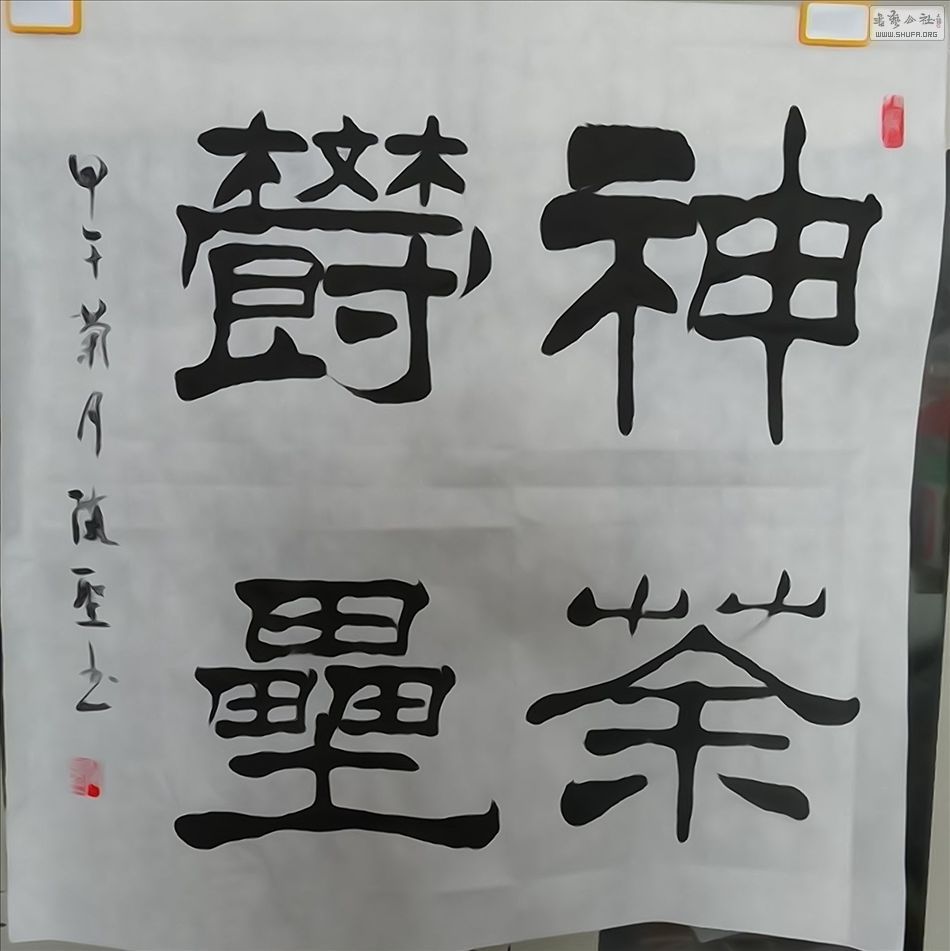 神荼
鬱壘
甲午菊月 书
書藝公社
WWW.SHUFA.ORG